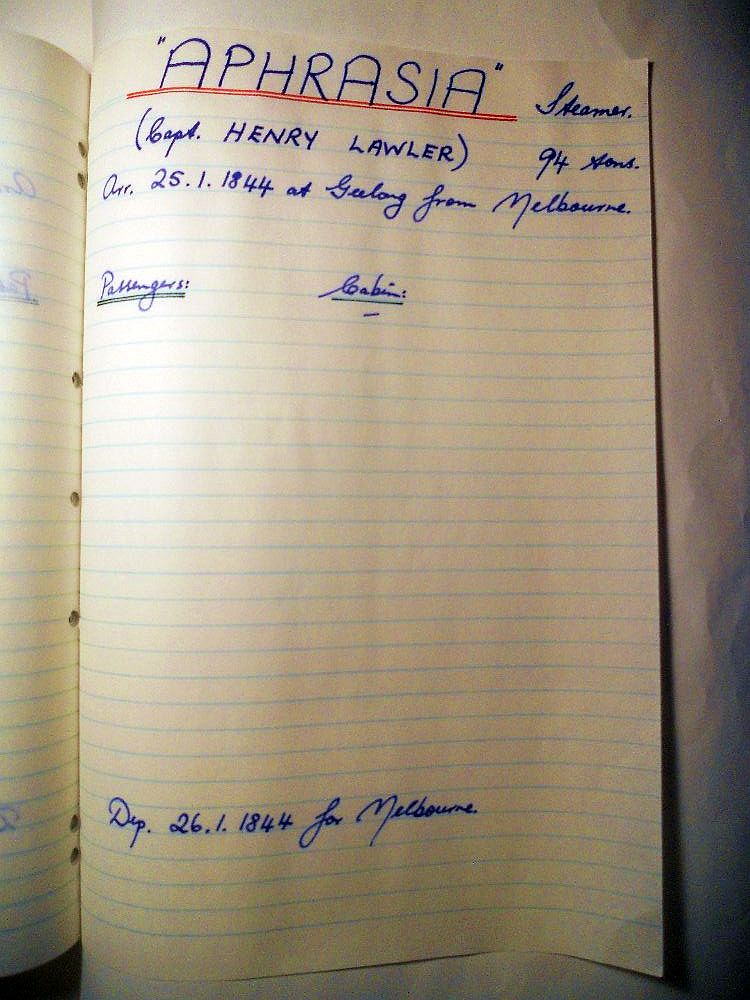 "APHRASIA" Steamer.
(Capt. HENRY LAWLER) 94 tons.
Arr. 25.1.1844 at Geelong from Melbourne.
Passengers: Cabin:
—
Dep. 26.1.1844 for Melbourne.